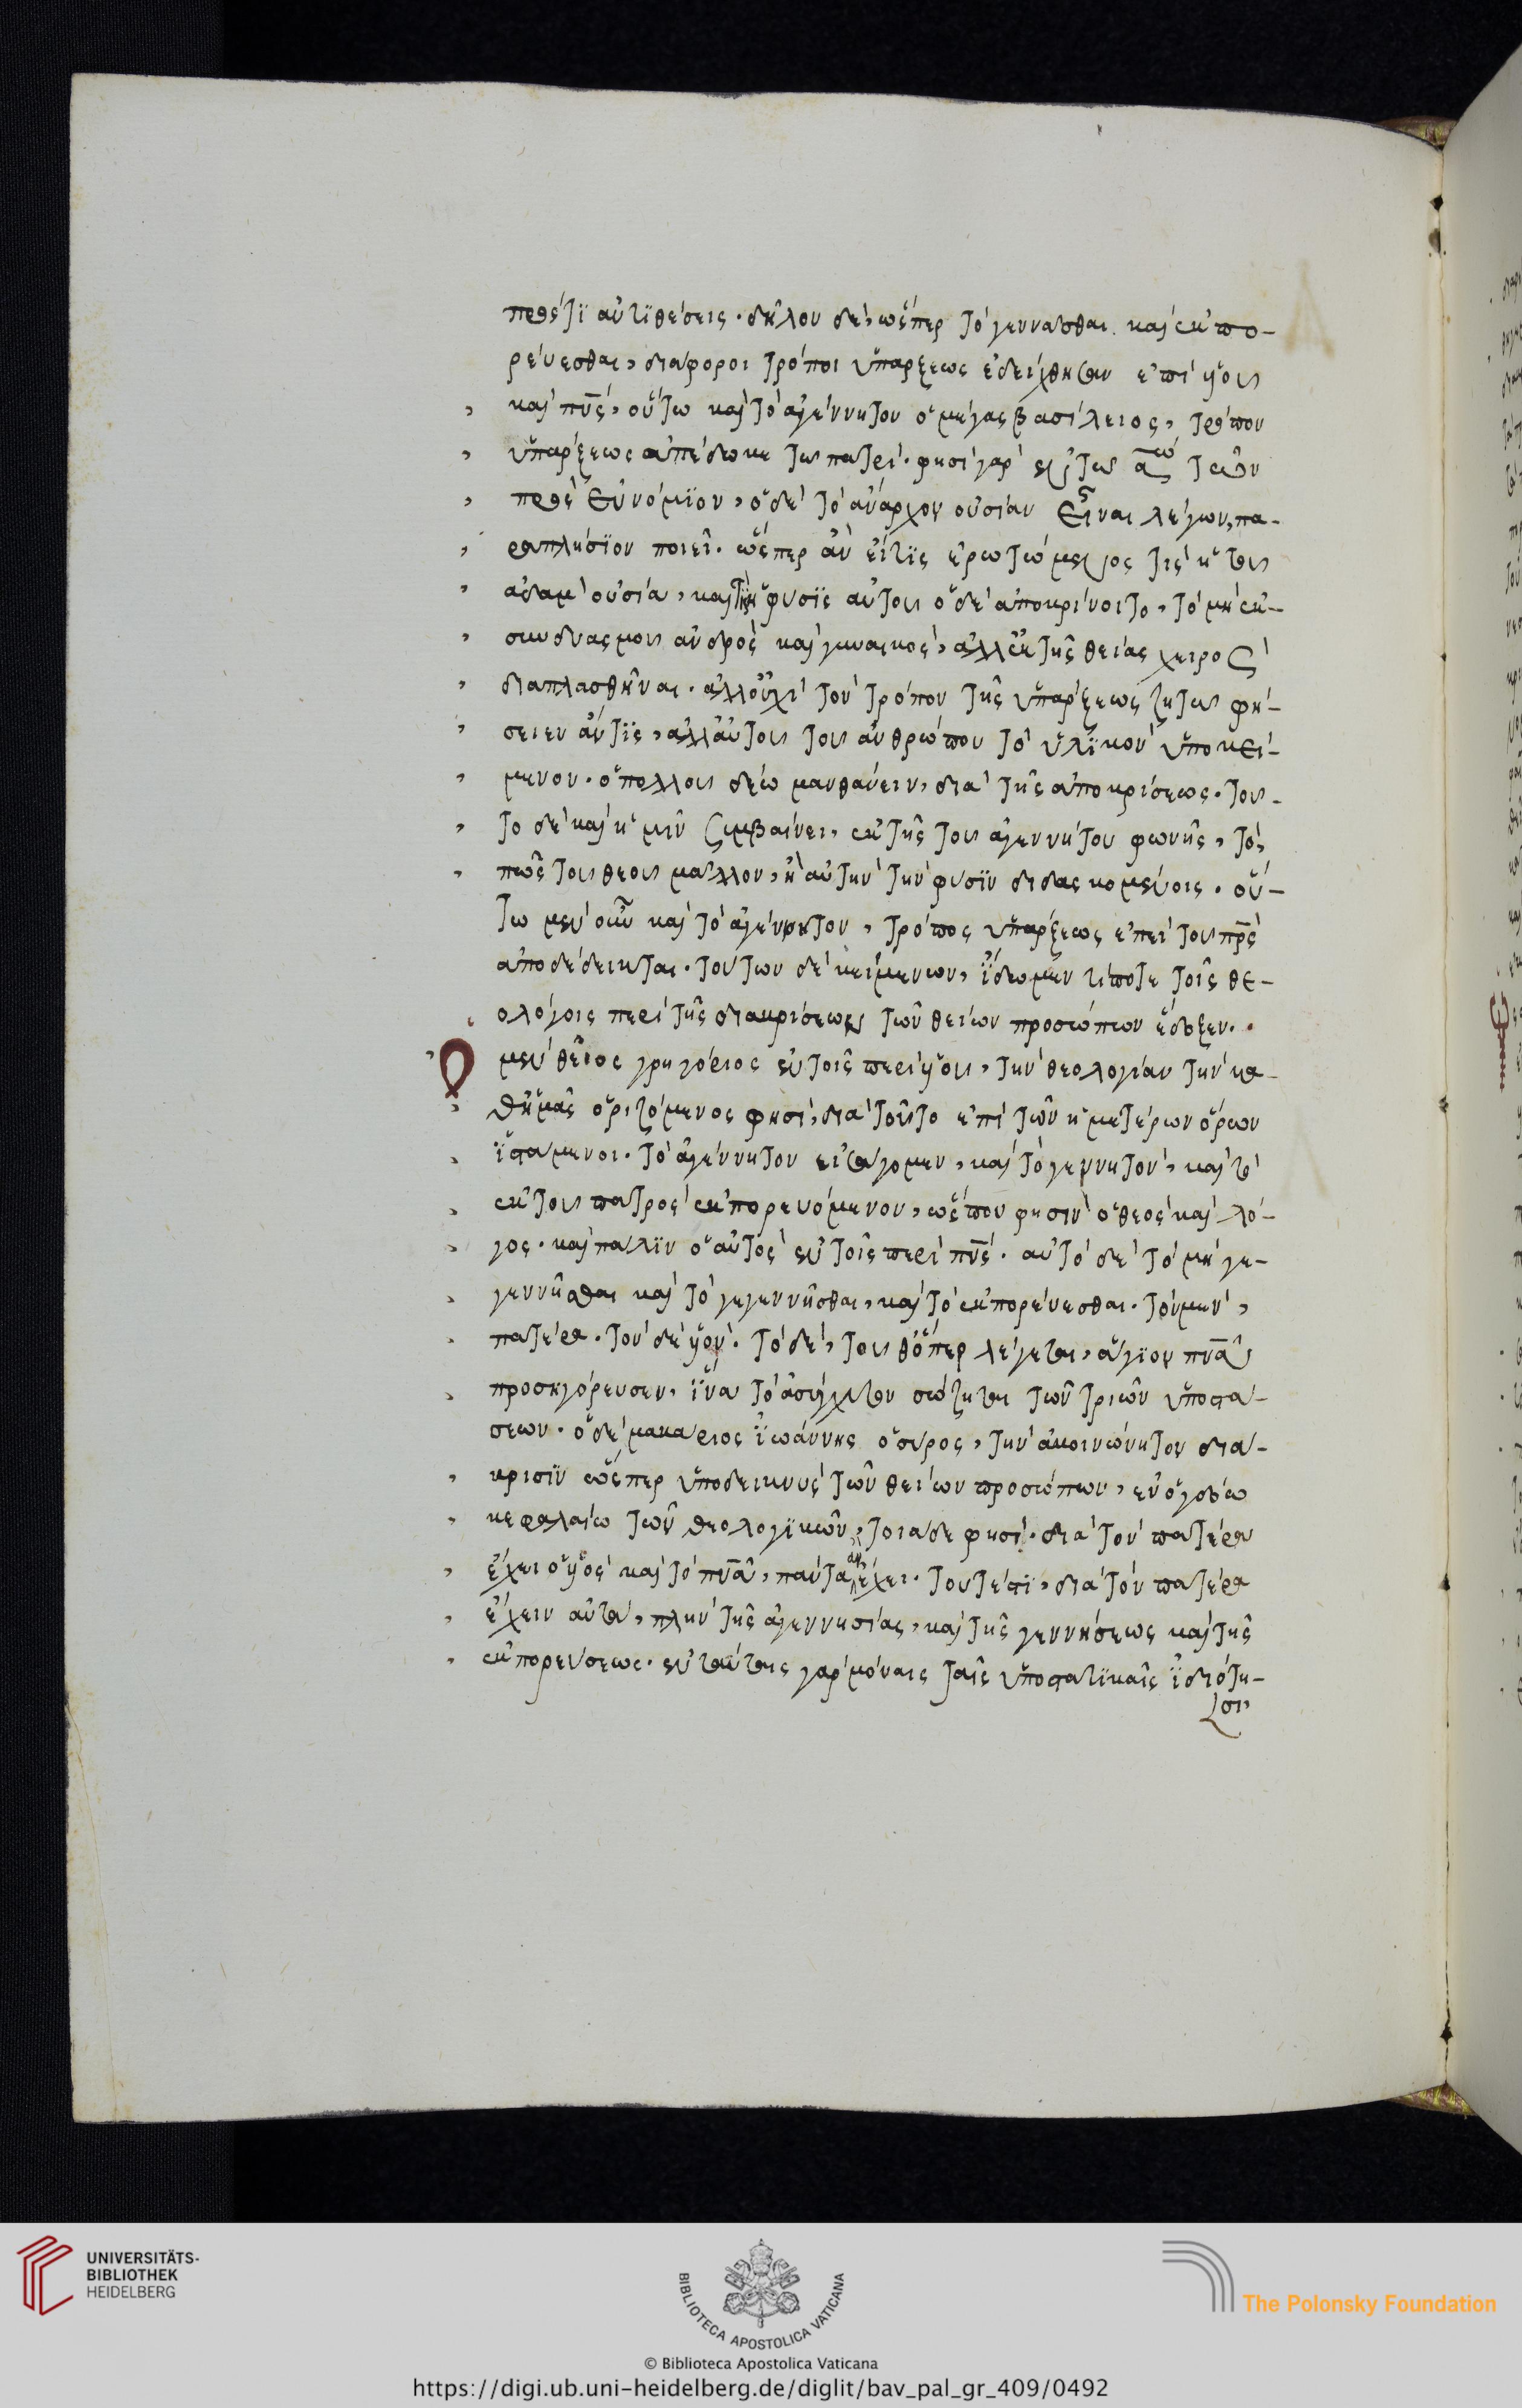 πρός τι ἀντιθέσεις· δῆλον δέ, ὥσπερ τὸ γεννᾶσθαι καὶ ἐκπο-
ρεύεσθαι, διάφοροι τρόποι ὑπάρξεως ἐδείχθησαν ἐπὶ υἱοῦ
καὶ πνς, οὕτω καὶ τὸ ἀγέννητον ὁ μέγας βασίλειος, τρόπον
ὑπάρξεως ἀπέδωκε τῶ πατρί· φησὶ γὰρ ἐν τῶ τῶν
πρὸς εὐνόμιον, ὁ δὲ τὸ ἄναρχον οὐσίαν εἶναι λέγων, πα-
ραπλήσιον ποιεῖ· ὥσπερ ἂν εἴ τις ἐρωτώμενος τίς ἡ τοῦ
ἀδὰμ οὐσία, καὶ τίς ἡ φύσις αὐτοῦ ὁ δὲ ἀποκρίνοιτο, τὸ μὴ ἐκ
συνδυασμοῦ ἀνδρὸς καὶ γυναικὸς, ἀλλ' ἐκ τῆς θείας χειρὸς
διαπλασθῆναι· ἀλλ' οὐχὶ τὸν τρόπον τῆς ὑπάρξεως ζητῶ φή-
σειεν ἄν τις, ἀλλ' αὐτοῦ τοῦ ἀνθρώπου τὸ ὑλικὸν ὑποκεί-
μενον· ὃ πολλοῦ δέω μανθάνειν, διὰ τῆς ἀποκρίσεως· τοῦ-
το δὲ καὶ ἡμῖν συμβαίνει, ἐκ τῆς τοῦ ἀγεννήτου φωνῆς, τὸ,
πῶς τοῦ θεοῦ μᾶλλον, ἢ αὐτὴν τὴν φύσιν διδασκομένοις· οὕ-
τω μὲν οὖν καὶ τὸ ἀγέννητον, τρόπος ὑπάρξεως ἐπεὶ τοῦ πρς
ἀποδέδεικται· τούτων δὲ κειμένων, ἴδωμεν τί ποτε τοῖς θε-
ολόγοις περὶ τῆς διακρίσεως τῶν θείων προσώπων ἔδοξεν·
Ὁ μὲν θεῖος γρηγόριος ἐν τοῖς περὶ υἱοῦ, τὴν θεολογίαν τὴν κα-
θ' ἡμᾶς ὁριζόμενος φησί, διὰ τοῦτο ἐπὶ τῶν ἡμετέρων ὅρων
ἱστάμενοι· τὸ ἀγέννητον εἰσάγομεν, καὶ τὸ γεννητὸν, καὶ τὸ
ἐκ τοῦ πατρὸς ἐκπορευόμενον, ὥς που φησὶν ὁ θεὸς καὶ λό-
γος· καὶ πάλιν ὁ αὐτὸς ἐν τοῖς περὶ πνς· αὐτὸ δὲ τὸ μὴ γε-
γεννῆσθαι καὶ τὸ γεγεννῆσθαι, καὶ τὸ ἐκπορεύεσθαι· τὸν μὲν,
πατέρα· τὸν δὲ υἱόν· τὸ δὲ, τοῦθ' ὅπερ λέγεται, ἅγιον πνα
προσηγόρευσεν, ἵνα τὸ ἀσύγχυτον σώζηται τῶν τριῶν ὑποστά-
σεων· ὁ δὲ μακάριος ἰωάννης ὁ σύρος, τὴν ἀκοινώνητον διά-
κρισιν ὥσπερ ὑποδεικνὺς τῶν θείων προσώπων, ἐν ὀγδόω
κεφαλαίω τῶν θεολογικῶν, τοιάδε φησί· διὰ τὸν πατέρα
ἔχει ὁ υἱὸς καὶ τὸ πνα, πάντα ἃ ἔχει· τουτέστι, διὰ τὸν πατέρα
ἔχειν αὐτά, πλὴν τῆς ἀγεννησίας, καὶ τῆς γεννήσεως καὶ τῆς
ἐκπορεύσεως· ἐν ταύταις γὰρ μόναις ταῖς ὑποστατικαῖς ἰδιότη-
σι,
UNIVERSITÄTS-
BIBLIOTHEK
HEIDELBERG
BIBLIOTECA APOSTOLICA VATICANA
The Polonsky Foundation
© Biblioteca Apostolica Vaticana
https://digi.ub.uni-heidelberg.de/diglit/bav_pal_gr_409/0492